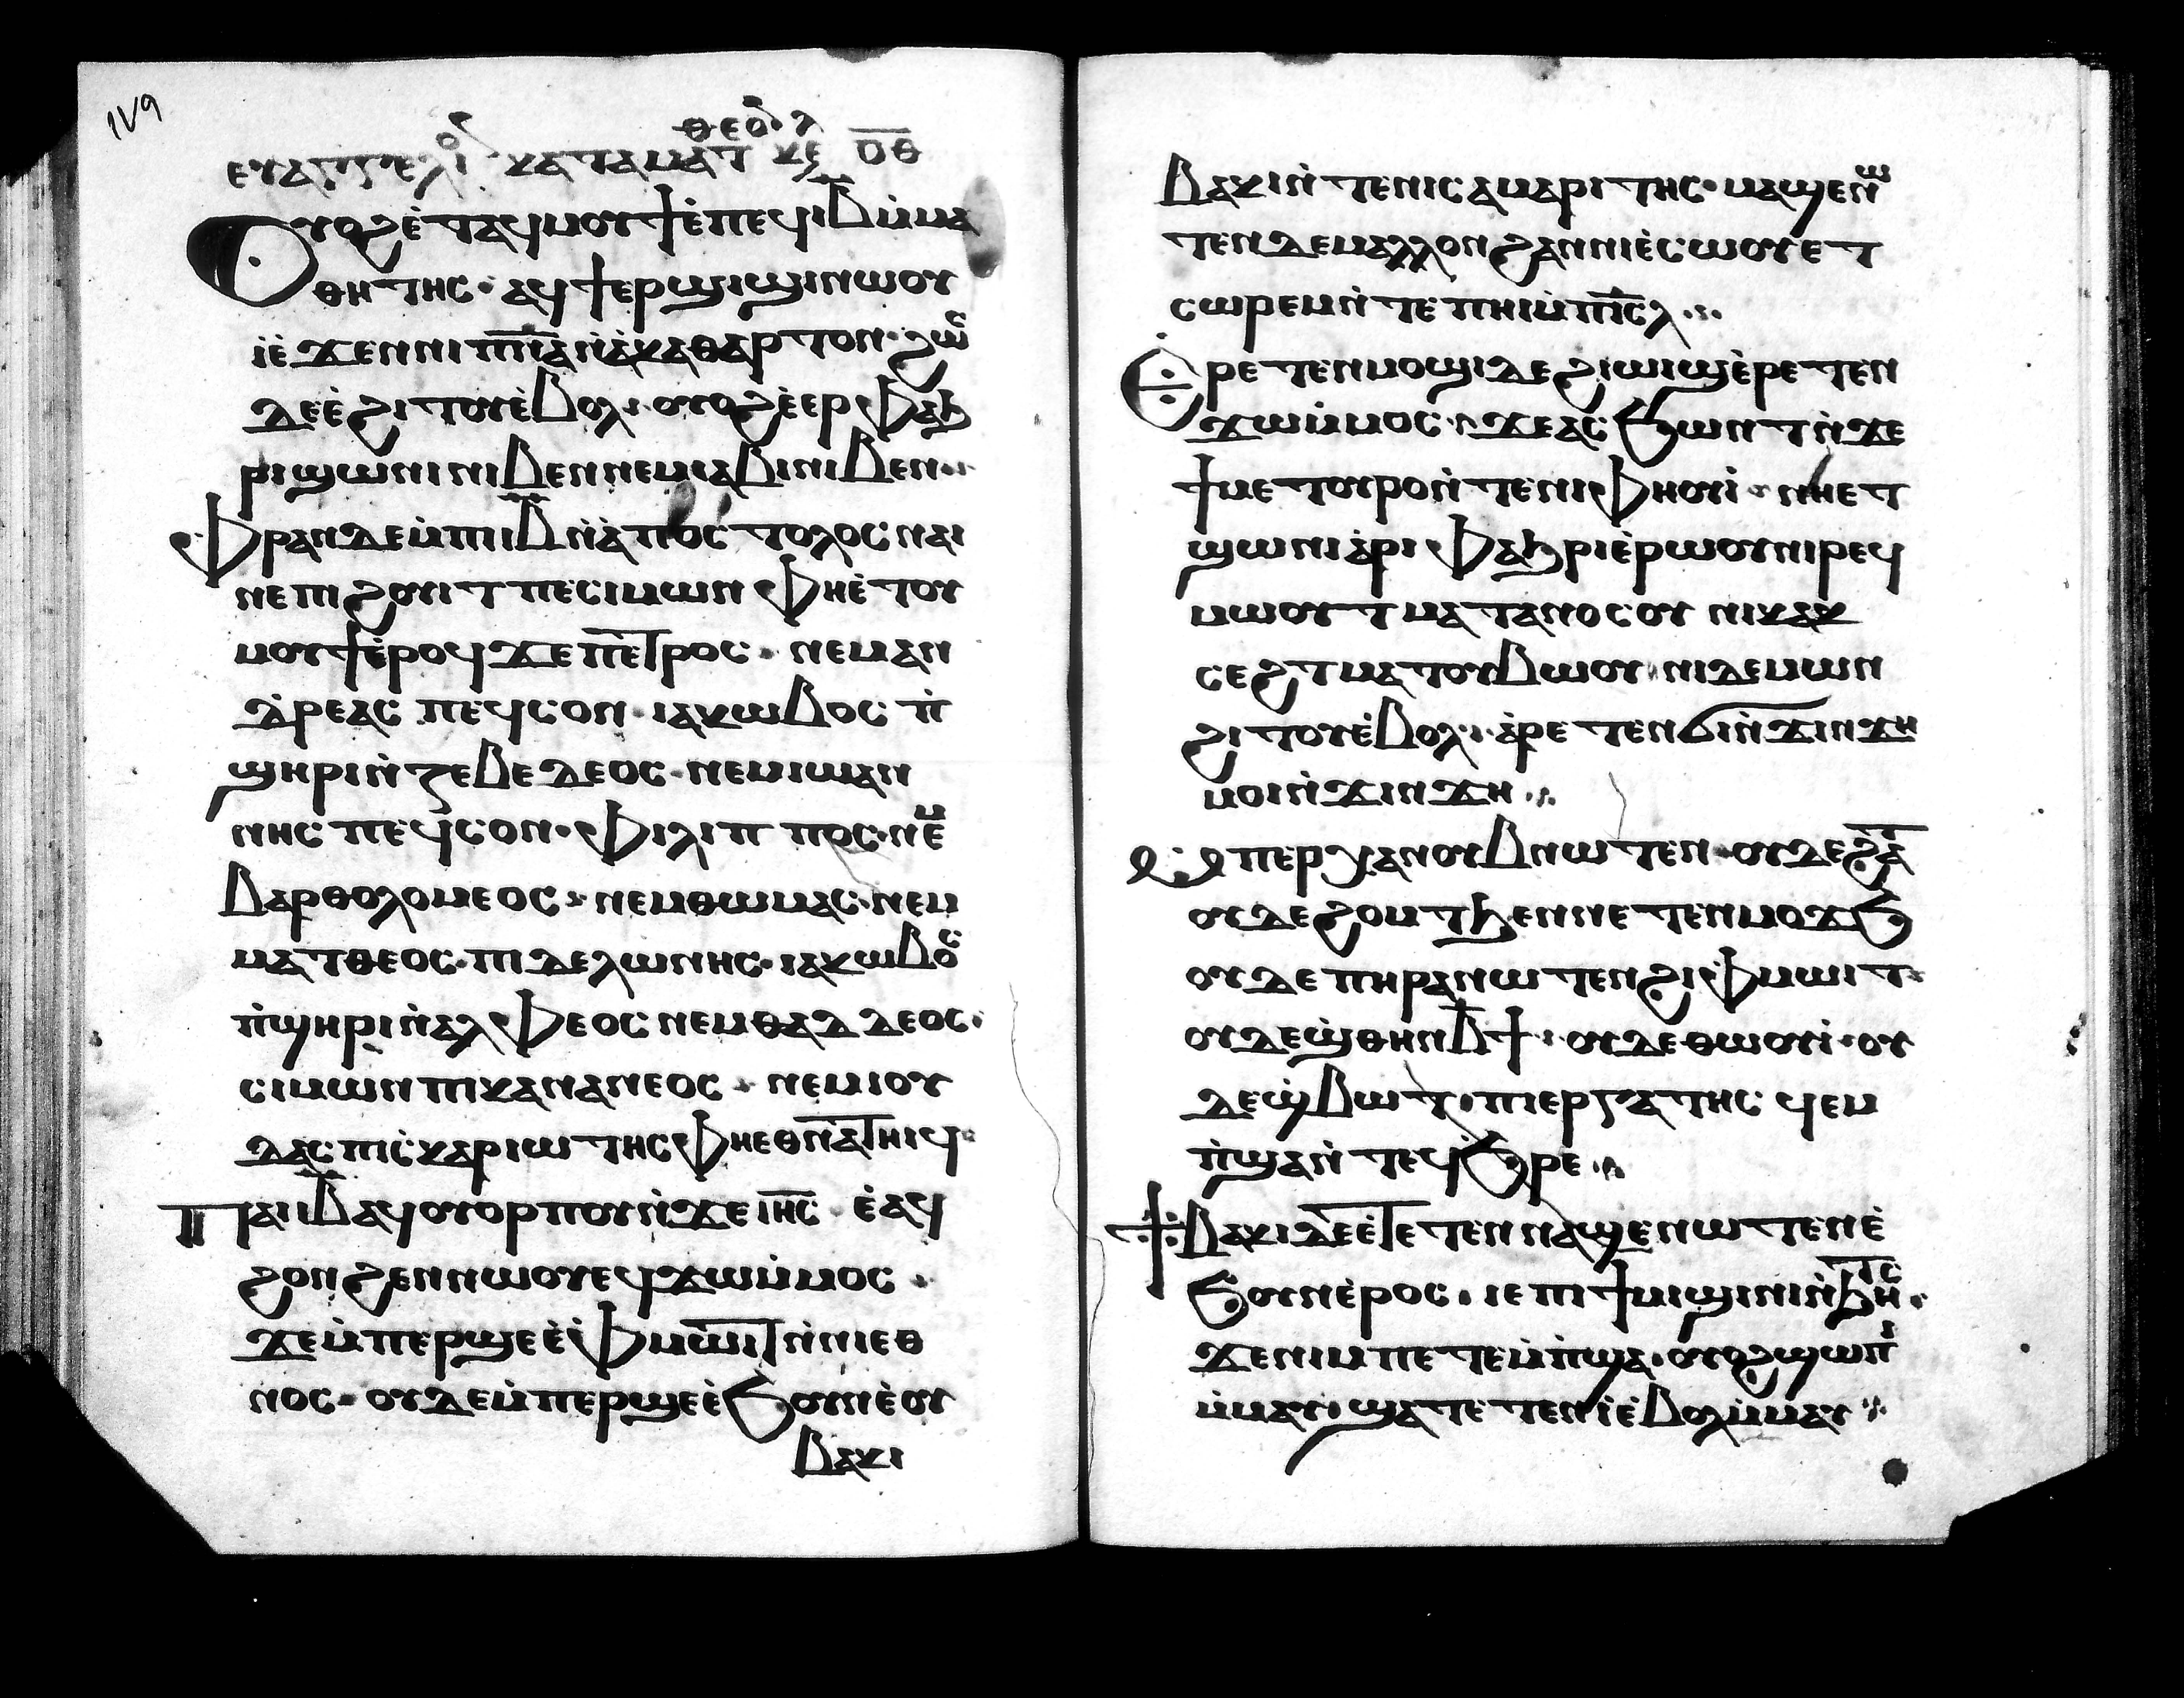 1V9
ⲑⲉⲟⲗ
ⲉⲩⲁⲅⲅⲉⲗⲓⲟ ⲕⲁⲧⲁⲙⲁⲧ ⲕⲉ ⲟ̅ⲑ̅
Ⲟⲩⲟϩⲉ̀ⲧⲁϥⲙⲟⲩϯⲉ̀ⲡⲉϥⲓ̅ⲃ̅ⲙ̀ⲙⲁ
ⲑⲏⲧⲏⲥ· ⲁϥϯⲉⲣϣⲓϣⲓⲛⲱⲟⲩ
ⲓ̀ⲉ̀ϫⲉⲛⲛⲓⲡ̅ⲛ̅ⲁ̅ⲛ̀ⲁ̀ⲕⲁⲑⲁⲣⲧⲟⲛ· ϩⲱⲥ
ⲇⲉⲉ̀ϩⲓⲧⲟⲩⲉ̀ⲃⲟⲗ· ⲟⲩⲟϩⲉ̀ⲉⲣⲫⲁϧ
ⲣⲓϣⲱⲛⲓⲛⲓⲃⲉⲛⲛⲉⲙⲓⲁⲃⲓⲛⲓⲃⲉⲛ·
Ⲫⲣⲁⲛⲇⲉⲙ̀ⲡⲓⲓ̅ⲃ̅ⲛ̀ⲁ̀ⲡⲟⲥⲧⲟⲗⲟⲥⲛⲁⲓ
ⲛⲉⲡⲓϩⲟⲩⲓⲧⲡⲉⲥⲓⲙⲱⲛ ⲫⲏⲉ̀ⲧⲟⲩ
ⲙⲟⲩϯⲉ̀ⲣⲟϥϫⲉⲡⲉⲧⲣⲟⲥ· ⲛⲉⲙⲁⲛ
ⲇ̀ⲣⲉⲁⲥ ⲡⲉϥⲥⲟⲛ· ⲓⲁⲕⲱⲃⲟⲥ ⲡ̀
ϣⲏⲣⲓⲛ̀ⲍⲉⲃⲉⲇⲉⲟⲥ· ⲛⲉⲙⲓⲱⲁⲛ
ⲛⲏⲥ ⲡⲉϥⲥⲟⲛ· ⲫⲓⲗⲓⲡⲡⲟⲥ·ⲛⲉⲙ
ⲃⲁⲣⲑⲟⲗⲟⲙⲉⲟⲥ· ⲛⲉⲙⲑⲱⲙⲁⲥ·ⲛⲉⲙ
ⲙⲁⲧⲑⲉⲟⲥ·ⲡⲓⲇⲉⲗⲱⲛⲏⲥ· ⲓⲁⲕⲱⲃⲟⲥ
ⲡ̀ϣⲏⲣⲓⲛ̀ⲁⲗⲫⲉⲟⲥ ⲛⲉⲙⲑⲁⲇⲇⲉⲟⲥ·
ⲥⲓⲙⲱⲛⲡⲓⲕⲁⲛⲁⲛⲉⲟⲥ· ⲛⲉⲙⲓⲟⲩ
ⲇⲁⲥ ⲡⲓⲥ̀ⲕⲁⲣⲓⲱⲧⲏⲥ ⲫⲏⲉⲑⲛⲁⲧⲏⲓϥ·
Ⲡⲁⲓⲓ̅ⲃ̅ⲁϥⲟⲩⲟⲣⲡⲟⲩⲛ̀ϫⲉⲓⲏ̅ⲥ̅ ⲉ̀ⲁϥ
ϩⲟⲛϩⲉⲛⲛⲱⲟⲩⲉϥϫⲱⲙ̀ⲙⲟⲥ·
ϫⲉⲙ̀ⲡⲉⲣϣⲉⲉ̀ⲫⲙⲱⲓⲧⲛ̀ⲛⲓⲉⲑ
ⲛⲟⲥ· ⲟⲩⲇⲉⲙ̀ⲡⲉⲣϣⲉⲉ̀ϧⲟⲩⲛⲉ̀ⲟⲩ
ⲃⲁⲕⲓ
ⲃⲁⲕⲓⲛ̀ⲧⲉⲛⲓⲥⲁⲙⲁⲣⲓⲧⲏⲥ· ⲙⲁϣⲉⲛⲱ
ⲧⲉⲛⲇⲉⲙⲁⲗⲗⲟⲛϩⲁⲛⲛⲓⲉ̀ⲥⲱⲟⲩⲉⲧ
ⲥⲱⲣⲉⲙⲛ̀ⲧⲉⲡⲏⲓⲙ̀ⲡⲓ̅ⲥ̅ⲗ̅·
Ⲉⲣⲉⲧⲉⲛⲙⲟϣⲓⲇⲉϩⲓⲱⲓϣⲉ̀ⲣⲉⲧⲉⲛ
ϫⲱⲙ̀ⲙⲟⲥ· ⲛ̀ϫⲉⲁⲥϧⲱⲛⲧⲛ̀ϫⲉ
ϯⲙⲉⲧⲟⲩⲣⲟⲛ̀ⲧⲉⲛⲓⲫⲏⲟⲩⲓ̀· ⲛⲏⲉⲧ
ϣⲱⲛⲓⲁ̀ⲣⲓⲫⲁϧⲣⲓⲉ̀ⲣⲱⲟⲩⲛⲓⲣⲉϥ
ⲙⲱⲟⲩⲧ ⲙⲁⲧⲁⲛⲟⲥⲟⲩ ⲛⲓⲕⲁⲕ
ⲥⲉϩⲧⲙⲁⲧⲟⲩⲃⲱⲟⲩ ⲛⲓⲇⲉⲙⲱⲛ
ϩⲓⲧⲟⲩⲉ̀ⲃⲟⲗ· ⲁ̀ⲣⲉⲧⲉⲛϭⲓⲛ̀ϫⲓⲛϫⲏ
ⲙⲟⲓⲛ̀ϫⲓⲛϫⲏ·
Ⲙⲡⲉⲣⲭⲁⲛⲟⲩⲃⲛⲱⲧⲉⲛ· ⲟⲩⲇⲉϩⲁ̅ⲧ̅
ⲟⲩⲇⲉϩⲟⲙⲧϧⲉⲛⲛⲉⲧⲉⲛⲙⲟϫϧ
ⲟⲩⲇⲉⲡⲏⲣⲁⲛⲱⲧⲉⲛϩⲓⲫⲙⲱⲓⲧ·
ⲟⲩⲇⲉϣ̀ⲑⲏⲛⲃ̅ϯ· ⲟⲩⲇⲉⲑⲱⲟⲩⲓ̀·ⲟⲩ
ⲇⲉϣ̀ⲃⲱⲧ·ⲡⲓⲉⲣⲅⲁⲧⲏⲥ ϥⲉⲙ
ⲡ̀ϣⲁⲛ̀ⲧⲉϥϧ̀ⲣⲉ·
Ϯⲃⲁⲕⲓⲇⲉⲉ̀ⲧⲉⲧⲉⲛⲛⲁϣⲉⲛⲱⲧⲉⲛⲉ̀
ϧⲟⲩⲛⲉ̀ⲣⲟⲥ· ⲓⲉⲡⲓϯⲙⲓϣⲓⲛⲓⲛ̀ϧⲏⲧⲥ·
ϫⲉⲛⲓⲙⲡⲉⲧⲉⲙ̀ⲡ̀ϣⲁ·ⲟⲩⲟϩϣⲱⲡⲓ
ⲙ̀ⲙⲁⲩ·ϣⲁⲧⲉⲧⲉⲛⲓ̀ⲉ̀ⲃⲟⲗⲙ̀ⲙⲁⲩ·